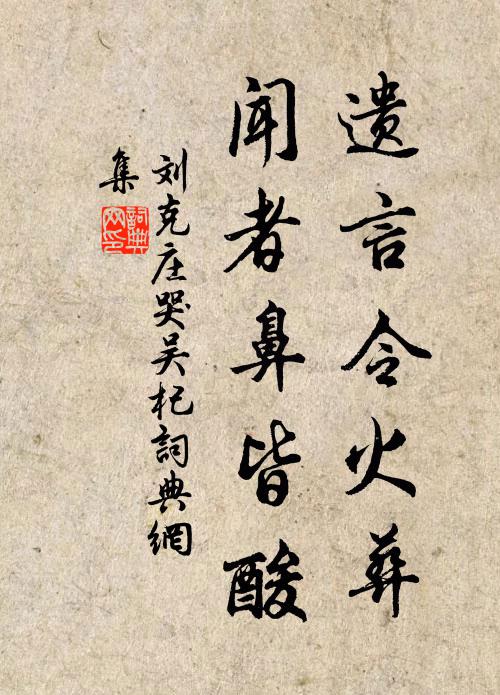 遗言令火葬
闻者鼻皆酸
刘克庄哭吴杞詞典網
集
詞典网印